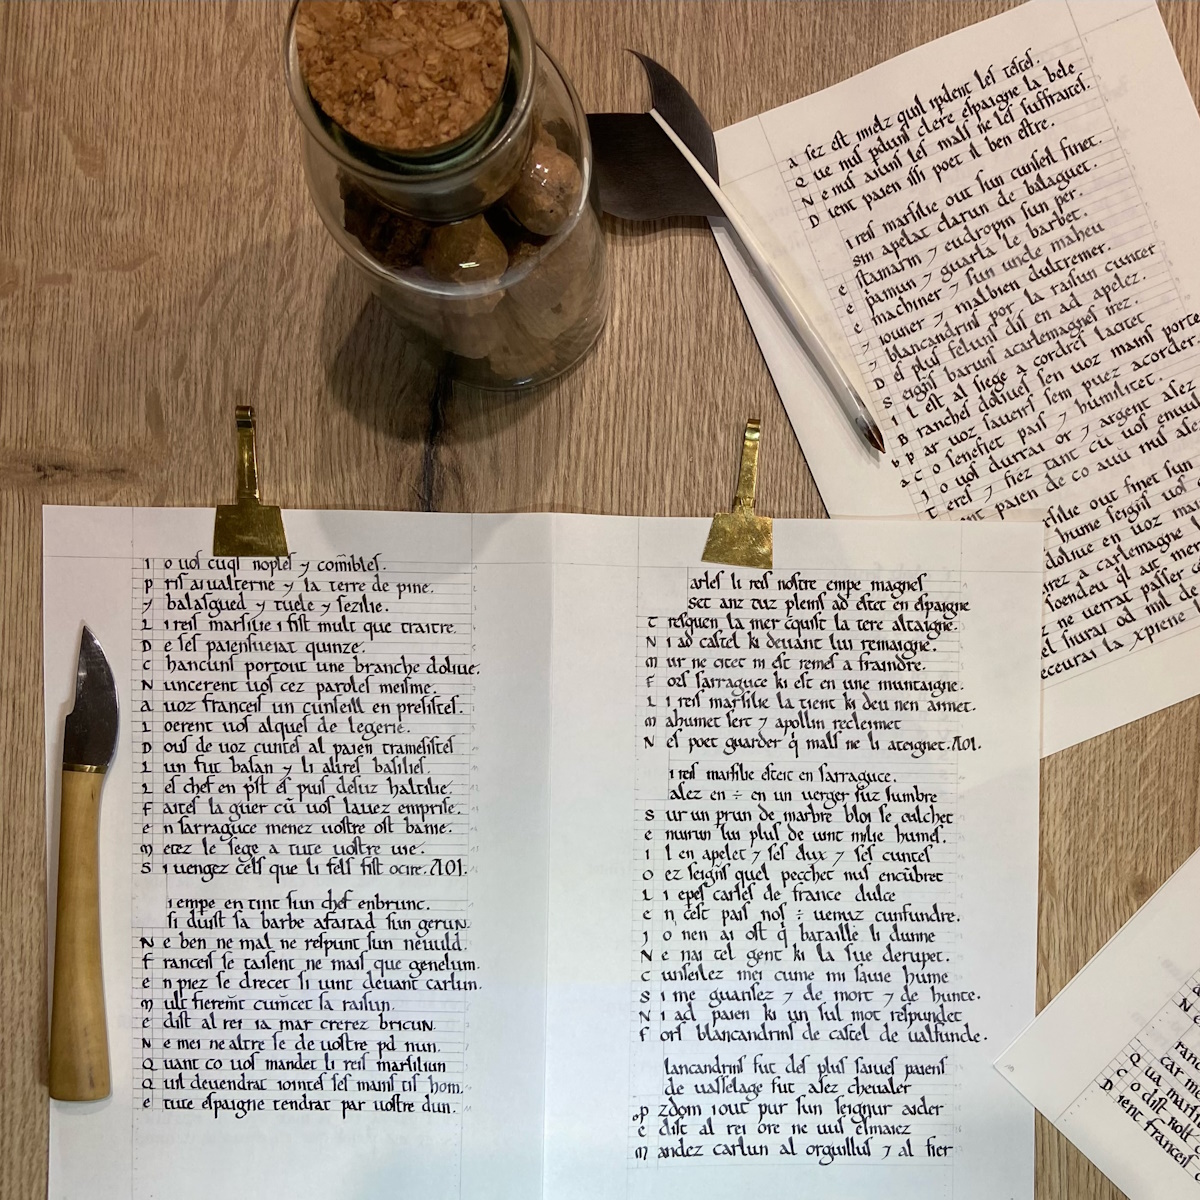 I o uoſ cuqſ nopleſ ⁊ com̄ibleſ.
P riſ aiualterne ⁊ la terre de pine.
⁊ balaſgued ⁊ tuele ⁊ ſezilie.
L i reiſ marſilie i fiſt mult que traitre.
D e ſeſ paien ueiat quinze.
C hancunſ portout une branche doliue.
N uncerent uoſ cez paroleſ meiſme.
a uoz franceiſ un cunſeill en preſiſteſ.
L oerent uoſ alqueſ de legerie.
D ouſ de uoz cunteſ al paien trameſiſteſ
L un fut baſan ⁊ li altreſ baſilieſ.
L eſ chef en p̍ſt eſ puiſ deſuz haltilie.
F aiteſ la guer cū uoſ lauez empriſe.
e n ſarraguce menez uoſtre oſt banie.
M etez le ſege a tute uoſtre uie.
S i uengez celſ que li felſ fiſt ocire. AOI.
i empe en tint ſun chef enbrunc.
ſi duiſt ſa barbe afaitad ſun gerun.
N e ben ne mal ne reſpunt ſun neuuld.
F ranceiſ ſe taiſent ne maiſ que guenelun.
e n piez ſe drecet ſi uint deuant carlun.
M ult fierem̄t cum̄cet ſa raiſun.
e diſt al rei ia mar crerez bricun.
N e mei ne altre ſe de uoſtre pd nun.
Q uant co uoſ mandet li reiſ marſiliun
Q uil deuendrat iointeſ ſeſ mainſ tiſ hom.
e tute eſpaigne tendrat par uoſtre dun.
arleſ li reiſ noſtre empe magneſ
set anz tuz pleinſ ad eſtet en eſpaigne
T reſquen la mer cq̄uiſt la tere altaigne.
N i ad caſtel ki deuant lui remaigne.
M ur ne citet ni eſt remeſ a fraindre.
F orſ ſarraguce ki eſt en une muntaigne.
L i reiſ marſilie la tient ki deu nen aimet.
M ahumet ſert ⁊ apollin recleimet
N eſ poet guarder q̍ malſ ne li ateignet. AOI.
i reiſ marſilie eſteit en ſarraguce.
alez en ÷ en un uerger ſuz lumbre
S ur un prun de marbre bloi ſe culchet
e nuirun lui pluſ de uint milie humeſ.
I l en apelet ⁊ ſeſ dux ⁊ ſeſ cunteſ
O ez ſeign̄ſ quel pecchet nuſ encūbret
L i epeſ carleſ de france dulce
e n ceſt paiſ noſ ÷ uenuz cunfundre.
J o nen ai oſt q̍ bataille li dunne
N e nai tel gent ki la ſue derupet.
C unſeilez mei cume mi ſaiue hume
S i me guarſez ⁊ de mort ⁊ de hunte.
N i ad paien ki un ſul mot reſpundet
F orſ blancandrinſ de caſtel de ualfunde.
lancandrinſ fut deſ pluſ ſaiueſ paienſ
de uaſſelage fut aſez cheualer
P zdom iout pur ſun ſeignur aider
e diſt al rei ore ne uuſ eſmaiez
M andez carlun al orguilluſ ⁊ al fier
a ſez eſt mielz quil i pdent leſ teſteſ.
Q ue nuſ pdunſ clere eſpaigne la bele
N e nuſ aiunſ leſ malſ ne leſ ſuffraiteſ.
D ient paien iſſi poet il ben eſtre.
i reiſ marſilie out ſun cunſeil finet.
sin apelat clarun de balaguet.
e ſtamarin ⁊ eudropin ſun per.
e pamun ⁊ guarla le barbet.
e machiner ⁊ ſun uncle maheu
⁊ iouner ⁊ malbien dultremer.
⁊ blancandrinſ por la raiſun cunter
D eſ pluſ felunſ diſ en ad apelez.
S eign̄ſ barunſ a carlemagneſ irez.
I l eſt al ſiege a cordreſ la citet
B rancheſ doliueſ en uoz mainſ porte
p ar uoz ſaueirſ ſem puez acorder.
c o ſenefiet paiſ ⁊ humilitet.
J o uoſ durrai or ⁊ argent aſez
T ereſ ⁊ fiez tant cū uoſ
nt paien de co aui nuſ aſe
rſilie out finet ſun
hume ſeign̄ſ uoſ
doliue en uoz ma
rez a carlemagne
ſoendeu q̍l ait mer
z ne uerrat paſſer
el ſiurai od mil de
receurai la xpiene
ranc
car me
Q ua marſi
C o diſt roll
D ient franceiſ